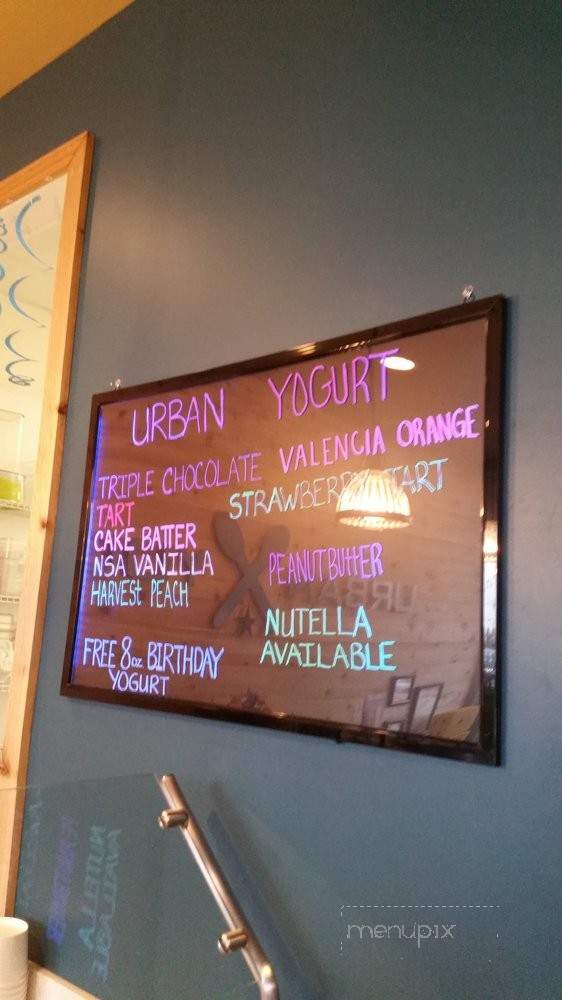 URBAN YOGURT
TRIPLE CHOCOLATE
TART
CAKE BATTER
NSA VANILLA
HARVEST PEACH
VALENCIA ORANGE
STRAWBERRY TART
PEANUT BUTTER
NUTELLA
AVAILABLE
FREE 8oz BIRTHDAY
YOGURT
URBAN
NUTELLA
AVAILABLE
menupix